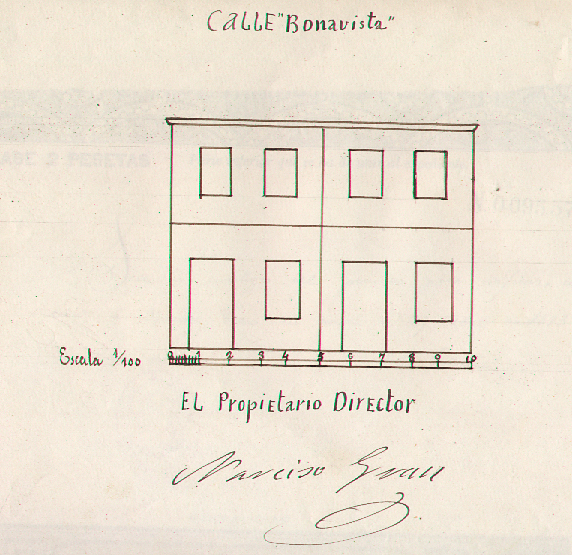 CALLE "Bonavista"
Escala 1/100
0 1 2 3 4 5 6 7 8 9 10
EL Propietario Director
Narciso Grau